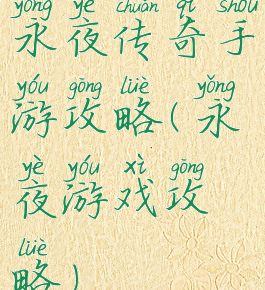 yǒng yè chuán qí shǒu
永夜传奇手
yóu gōng lüè yǒng
游攻略(永
yè yóu xì gōng
夜游戏攻
lüè
略)